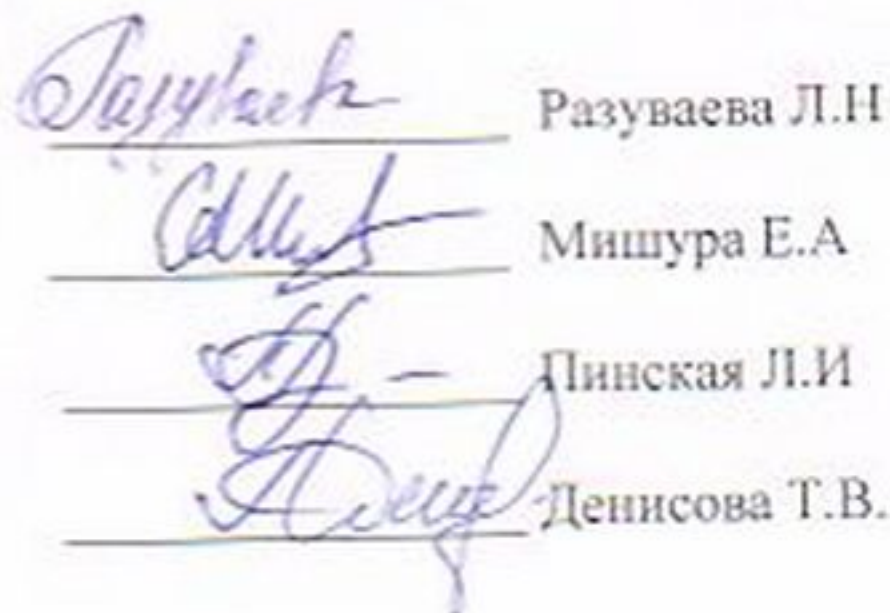 Разуваева Л.Н
Мишура Е.А
Пинская Л.И
Денисова Т.В.